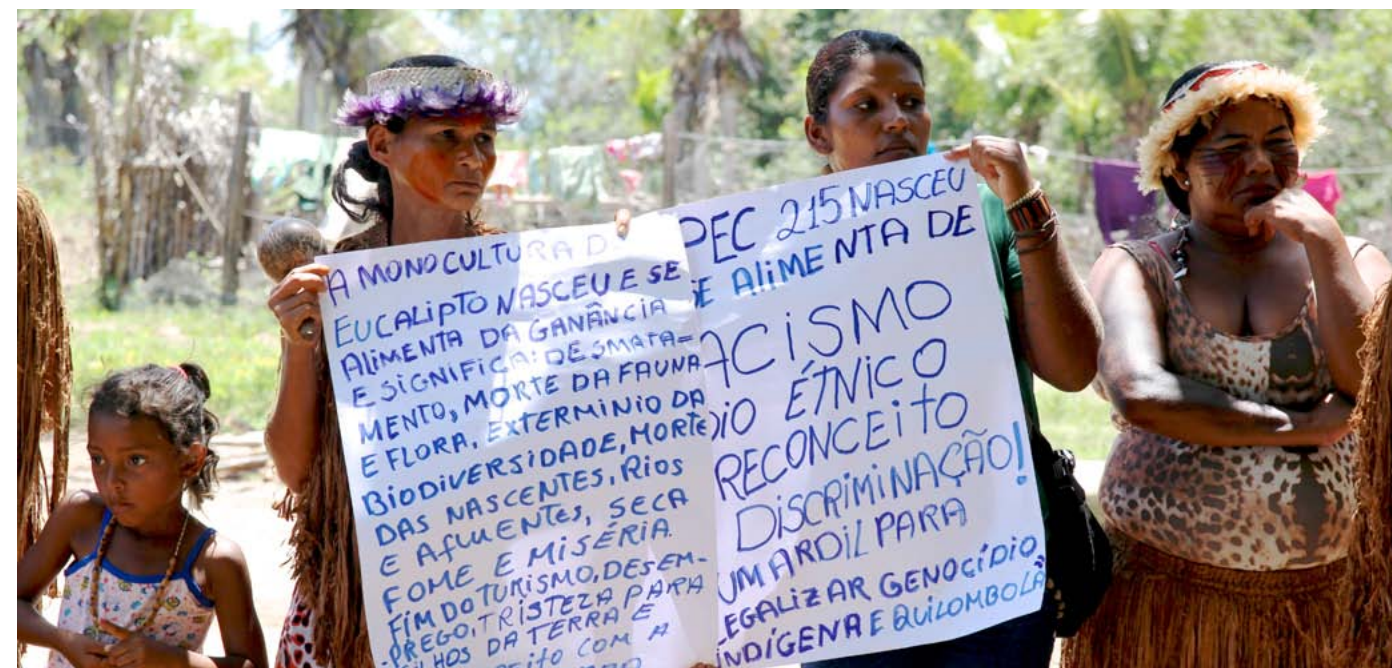 A MONOCULTURA D
EUCALIPTO NASCEU E SE
ALIMENTA DA GANÂNCIA
E SIGNIFICA: DESMATA=
MENTO, MORTE DA FAUNA
E FLORA, EXTERMINIO DA
BIODIVERSIDADE, MORTE
DAS NASCENTES, RIOS
E AFLUENTES, SECA
FOME E MISÉRIA.
FIM DO TURISMO, DESEM-
PREGO, TRISTEZA PARA
LHOS DA TERRA E
EITO COM A
PEC 215 NASCEU
SE ALIMENTA DE
ACISMO
DIO ÉTNICO
RECONCEITO
DISCRIMINAÇÃO!
UM ARDIL PARA
LEGALIZAR GENOCÍDIO
INDÍGENA E QUILOMBOLA